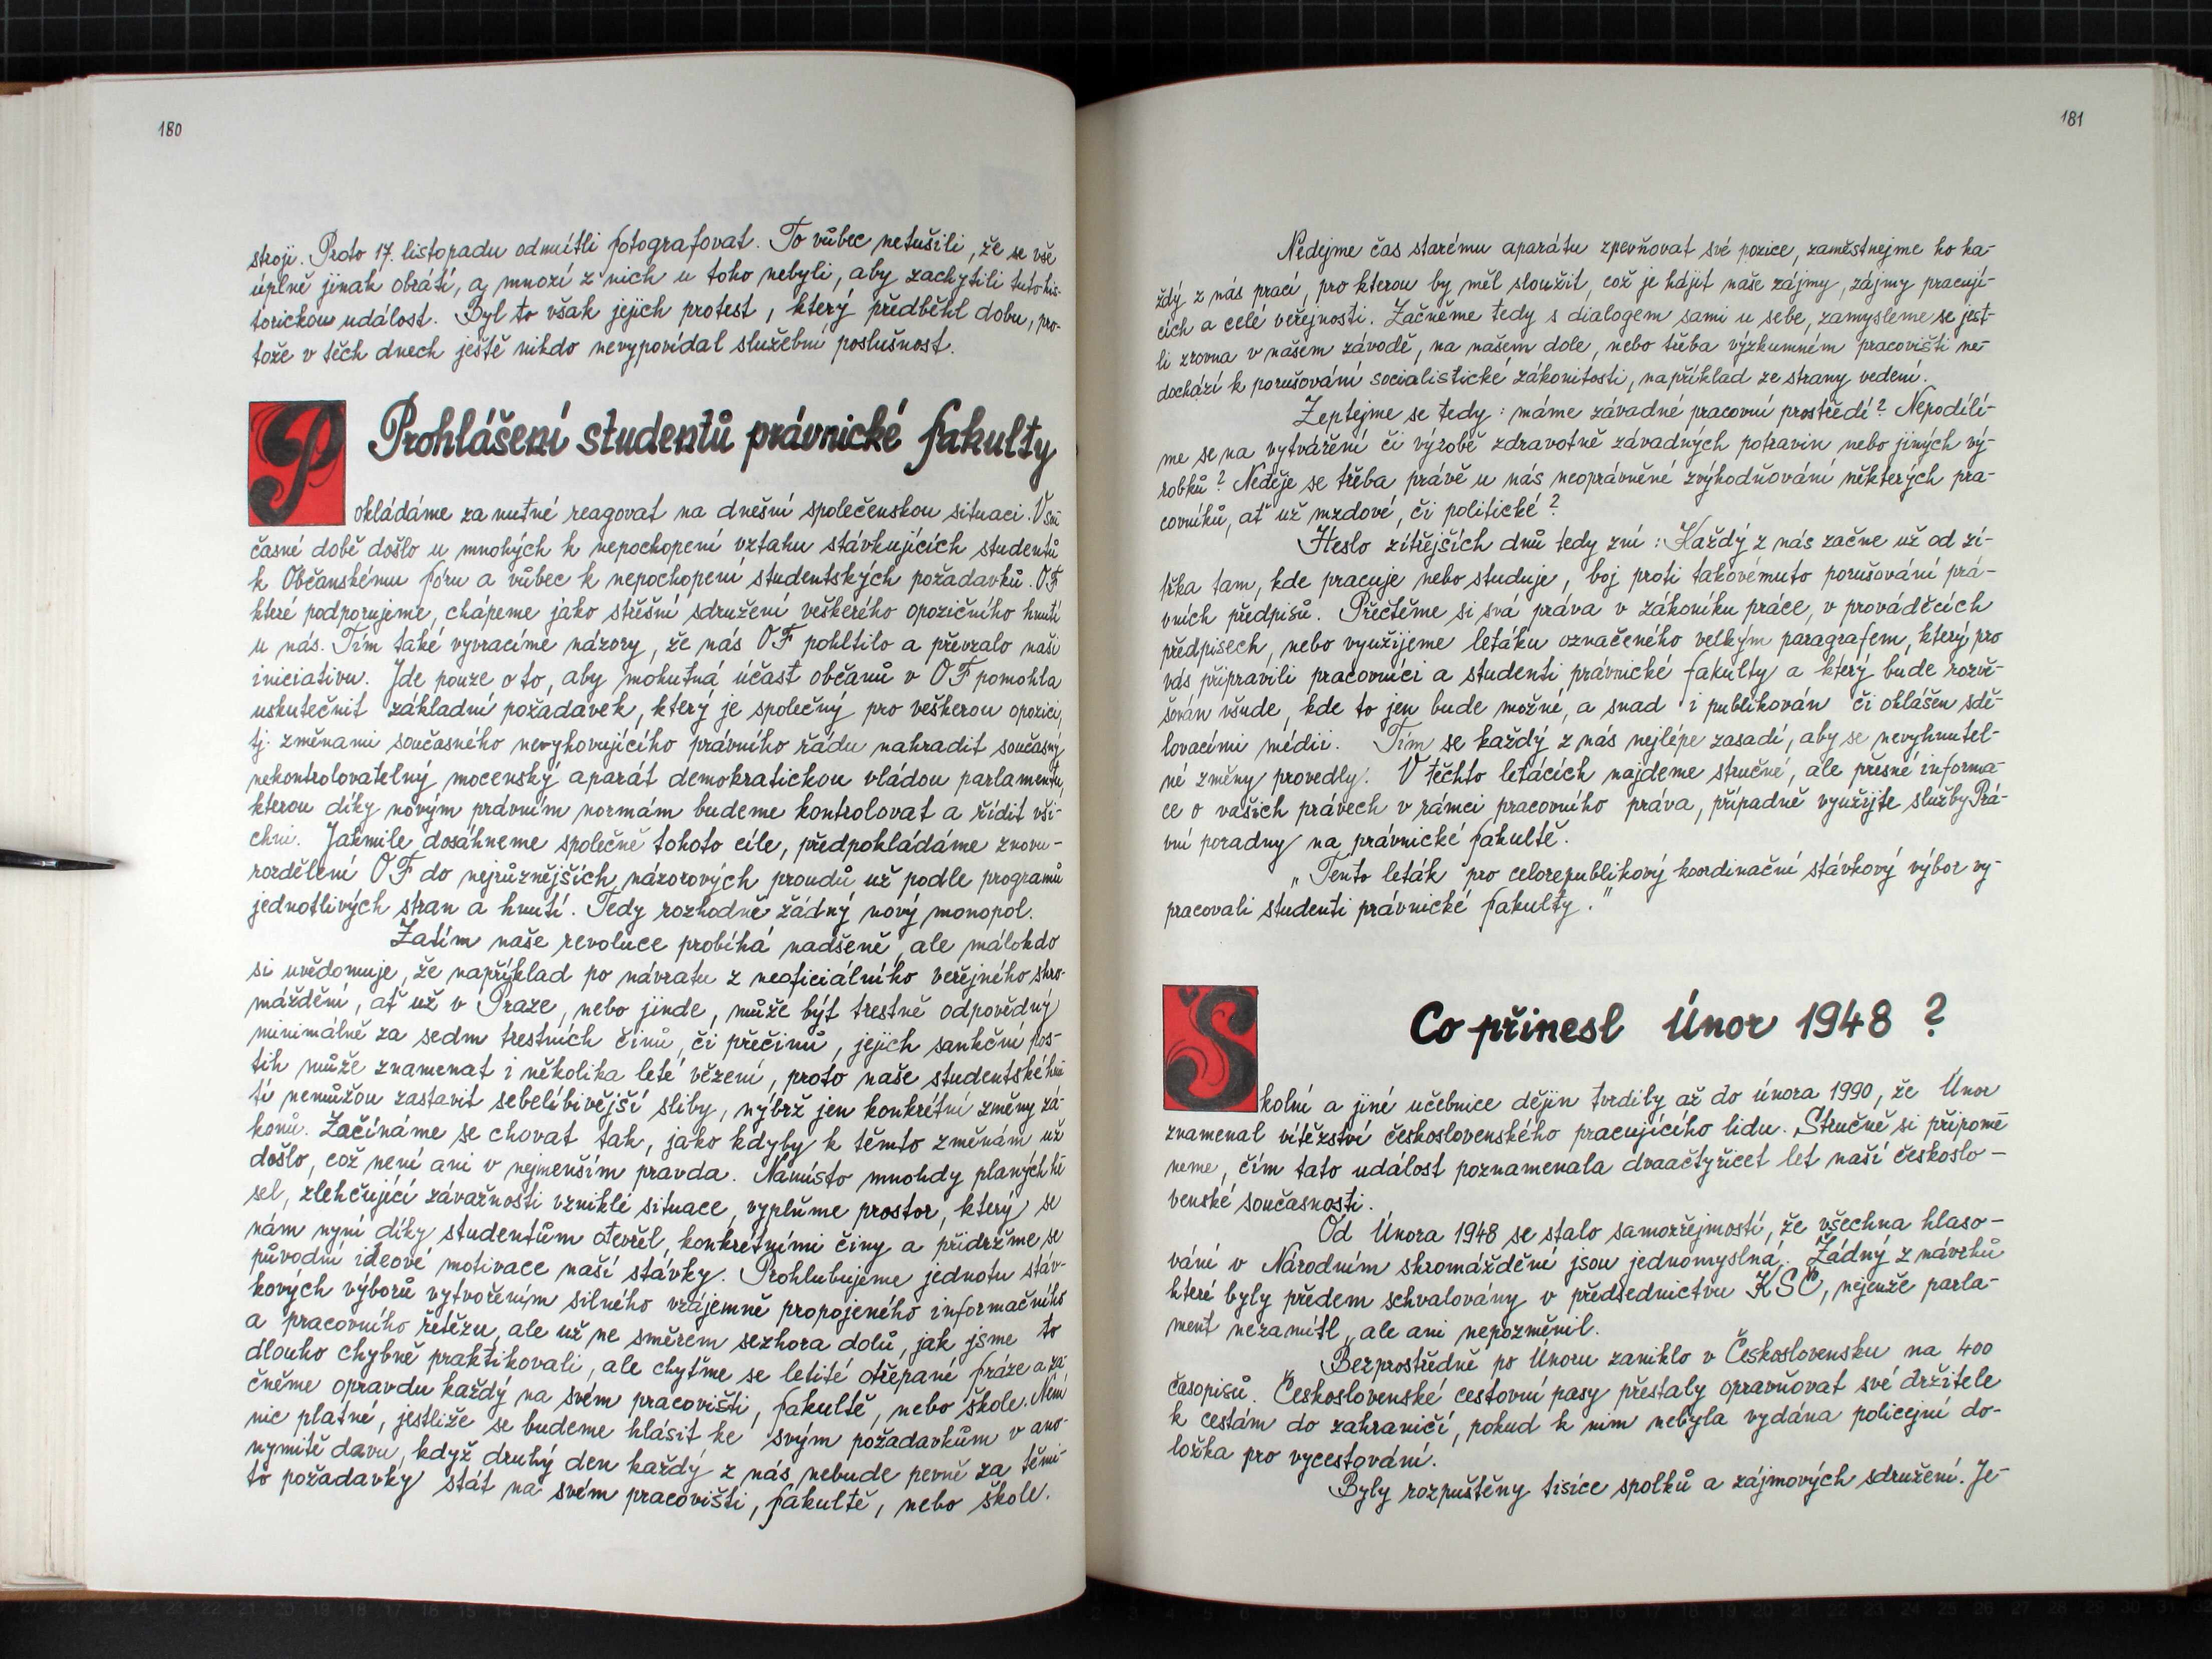 180
stroji. Proto 17. listopadu odmítli fotografovat. To vůbec netušili, že se vše
úplně jinak obrátí, a mnozí z nich u toho nebyli, aby zachytili tuto his-
torickou událost. Byl to však jejich protest, který předběhl dobu, pro-
tože v těch dnech ještě nikdo nevypovídal služební poslušnost.
Prohlášení studentů právnické fakulty
Pokládáme za nutné reagovat na dnešní společenskou situaci. V sou
časné době došlo u mnohých k nepochopení vztahu stávkujících studentů
k Občanskému fóru a vůbec k nepochopení studentských požadavků. OF
které podporujeme, chápeme jako střešní sdružení veškerého opozičního hnutí
u nás. Tím také vyvracíme názory, že nás OF pohltilo a převzalo naši
iniciativu. Jde pouze o to, aby mohutná účast občanů v OF pomohla
uskutečnit základní požadavek, který je společný pro veškerou opozici,
tj. změnami současného nevyhovujícího právního řádu nahradit současný
nekontrolovatelný mocenský aparát demokratickou vládou parlamentu,
kterou díky novým právním normám budeme kontrolovat a řídit vši-
chni. Jakmile dosáhneme společně tohoto cíle, předpohládáme znovu-
rozdělení OF do nejrůznějších názorových proudů už podle programů
jednotlivých stran a hnutí. Tedy rozhodně žádný nový monopol.
Zatím naše revoluce probíhá nadšeně, ale málokdo
si uvědomuje, že například po návratu z neoficiálního veřejného shro-
máždění, ať už v Praze, nebo jinde, může být trestně odpovědný
minimálně za sedm trestních činů, či přečinů, jejich sankční pos-
tih může znamenat i několika leté vězení, proto naše studentské hnu
tí nemůžou zastavit sebelíbivější sliby, nýbrž jen konkrétní změny zá-
konů. Začínáme se chovat tak, jako kdyby k těmto změnám už
došlo, což není ani v nejmenším pravda. Namísto mnohdy planých he
sel, zlehčující závažnosti vzniklé situace, vyplňme prostor, který se
nám nyní díky studentům otevřel, konkrétními činy a přidržme se
původní ideové motivace naší stávky. Prohlubujeme jednotu stáv-
kových výborů vytvořením silného vzájemně propojeného informačního
a pracovního řetězu, ale už ne směrem sezhora dolů, jak jsme to
dlouho chybně praktikovali, ale chytme se letité otřepané fráze a za
čněme opravdu každý na svém pracovišti, fakultě, nebo škole. Není
nic platné, jestliže se budeme hlásit ke svým požadavkům v ano-
nymitě davu, když druhý den každý z nás nebude pevně za těmi-
to požadavky stát na svém pracovišti, fakultě, nebo škole.
181
Nedejme čas starému aparátu zpevňovat své pozice, zaměstnejme ho ka-
ždý z nás prací, pro kterou by měl sloužit, což je hájit naše zájmy, zájmy pracují-
cích a celé veřejnosti. Začněme tedy s dialogem sami u sebe, zamysleme se jest-
li zrovna v našem závodě, na našem dole, nebo třeba výzkumném pracovišti ne-
dochází k porušování socialistické zákonitosti, například ze strany vedení.
Zeptejme se tedy: máme závadné pracovní prostředí? Nepodílí-
me se na vytváření či výrobě zdravotně závadných potravin nebo jiných vý-
robků? Neděje se třeba právě u nás neoprávněné zvýhodňování některých pra-
covníků, ať už mzdové, či politické?
Heslo zítřejších dnů tedy zní: Každý z nás začne už od zí-
třka tam, kde pracuje nebo studuje, boj proti takovémuto porušování prá-
vních předpisů. Přečtěme si svá práva v zákoníku práce, v prováděcích
předpisech, nebo využijeme letáku označeného velkým paragrafem, který pro
vás připravili pracovníci a studenti právnické fakulty a který bude rozvě-
šován všude, kde to jen bude možné, a snad i publikován či ohlášen sdě-
lovacími médii. Tím se každý z nás nejlépe zasadí, aby se nevyhnutel-
né změny provedly. V těchto letácích najdeme stručné, ale přesné informa-
ce o vašich právech v rámci pracovního práva, případně využijte služby Prá-
vní poradny na právnické fakultě.
„Tento leták pro celorepublikový koordinační stávkový výbor vy-
pracovali studenti právnické fakulty."
Co přinesl Únor 1948 ?
Školní a jiné učebnice dějin tvrdily až do února 1990, že Únor
znamenal vítězství československého pracujícího lidu. Stručně si připome
neme, čím tato událost poznamenala dvaačtyřicet let naší českoslo-
venské současnosti.
Od Února 1948 se stalo samozřejmostí, že všechna hlaso-
vání v Národním shromáždění jsou jednomyslná. Žádný z návrhů
které byly předem schvalovány v předsednictvu KSČ, nejenže parla-
ment nezamítl, ale ani nepozměnil.
Bezprostředně po Únoru zaniklo v Československu na 400
časopisů. Československé cestovní pasy přestaly opravňovat své držitele
k cestám do zahraničí, pokud k nim nebyla vydána policejní do-
ložka pro vycestování.
Byly rozpuštěny tisíce spolků a zájmových sdružení. Je-